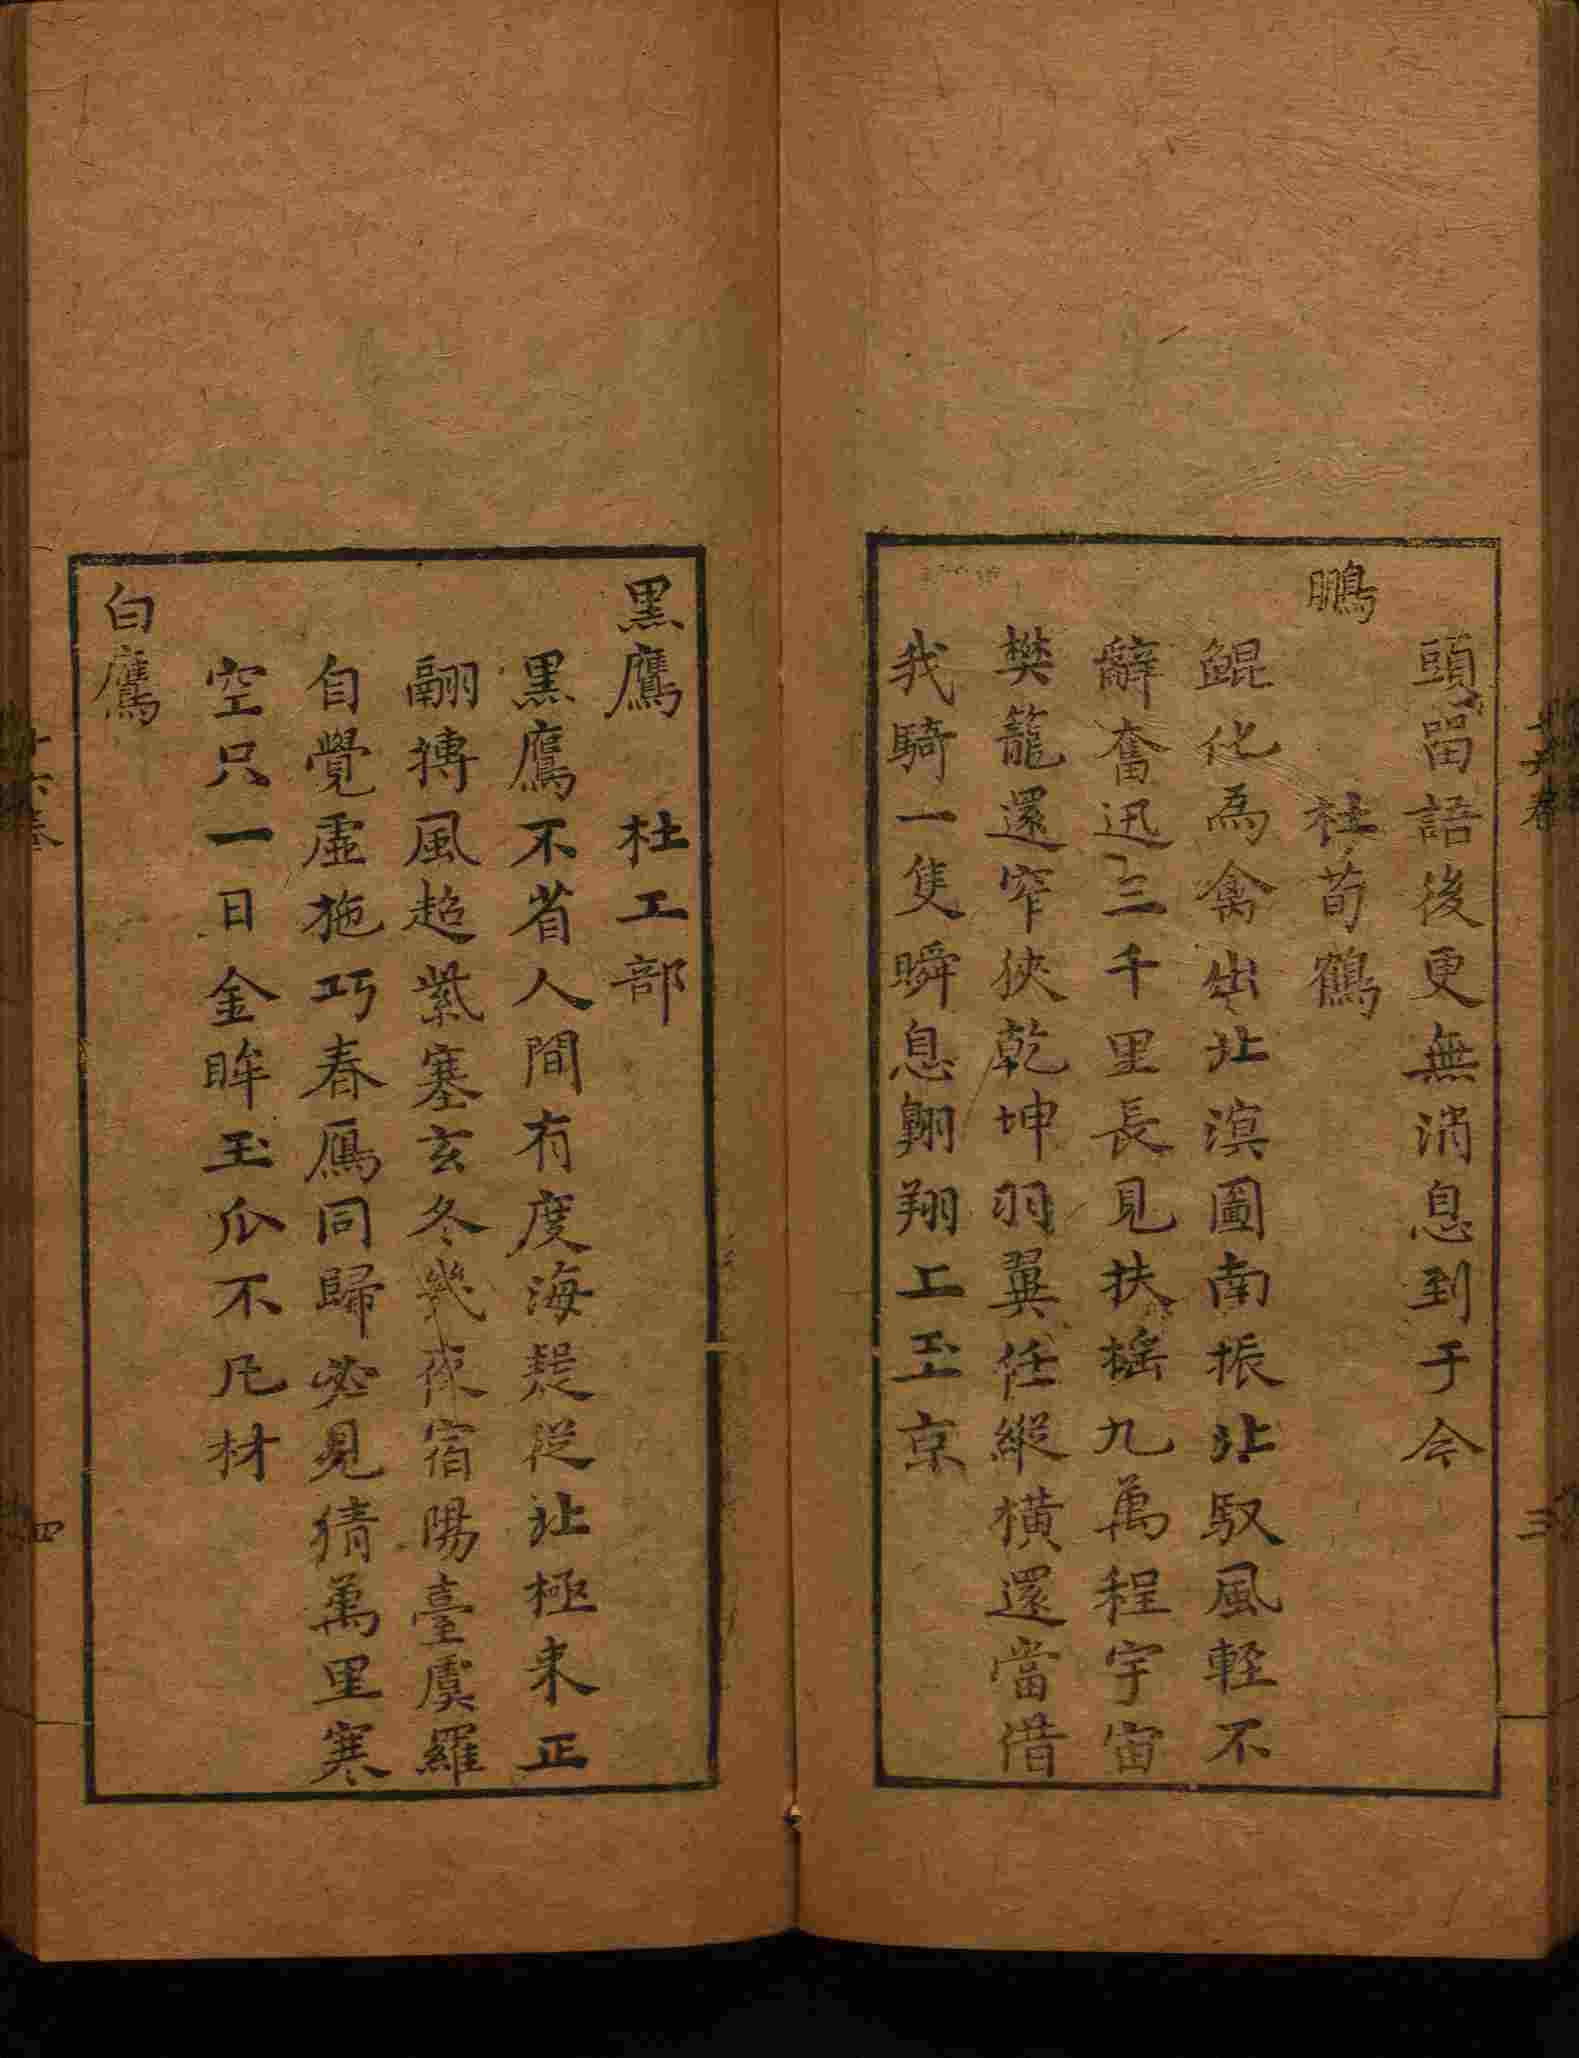 頭留語後更無消息到于今
鵬
杜荀鶴
鯤化為禽出北溟圖南振北馭風輕不
辭奮迅三千里長見扶摇九萬程宇宙
樊籠還窄狹乾坤羽翼任縱橫還當借
我騎一隻瞬息翺翔上玉京
三
黑鷹 杜工部
黒鷹不省人間有度海疑從北極来正
翮摶風超紫塞玄冬幾夜宿陽臺虞羅
自覺虚施巧春鴈同歸必見猜萬里寒
空只一日金眸玉爪不凡材
白鷹
四